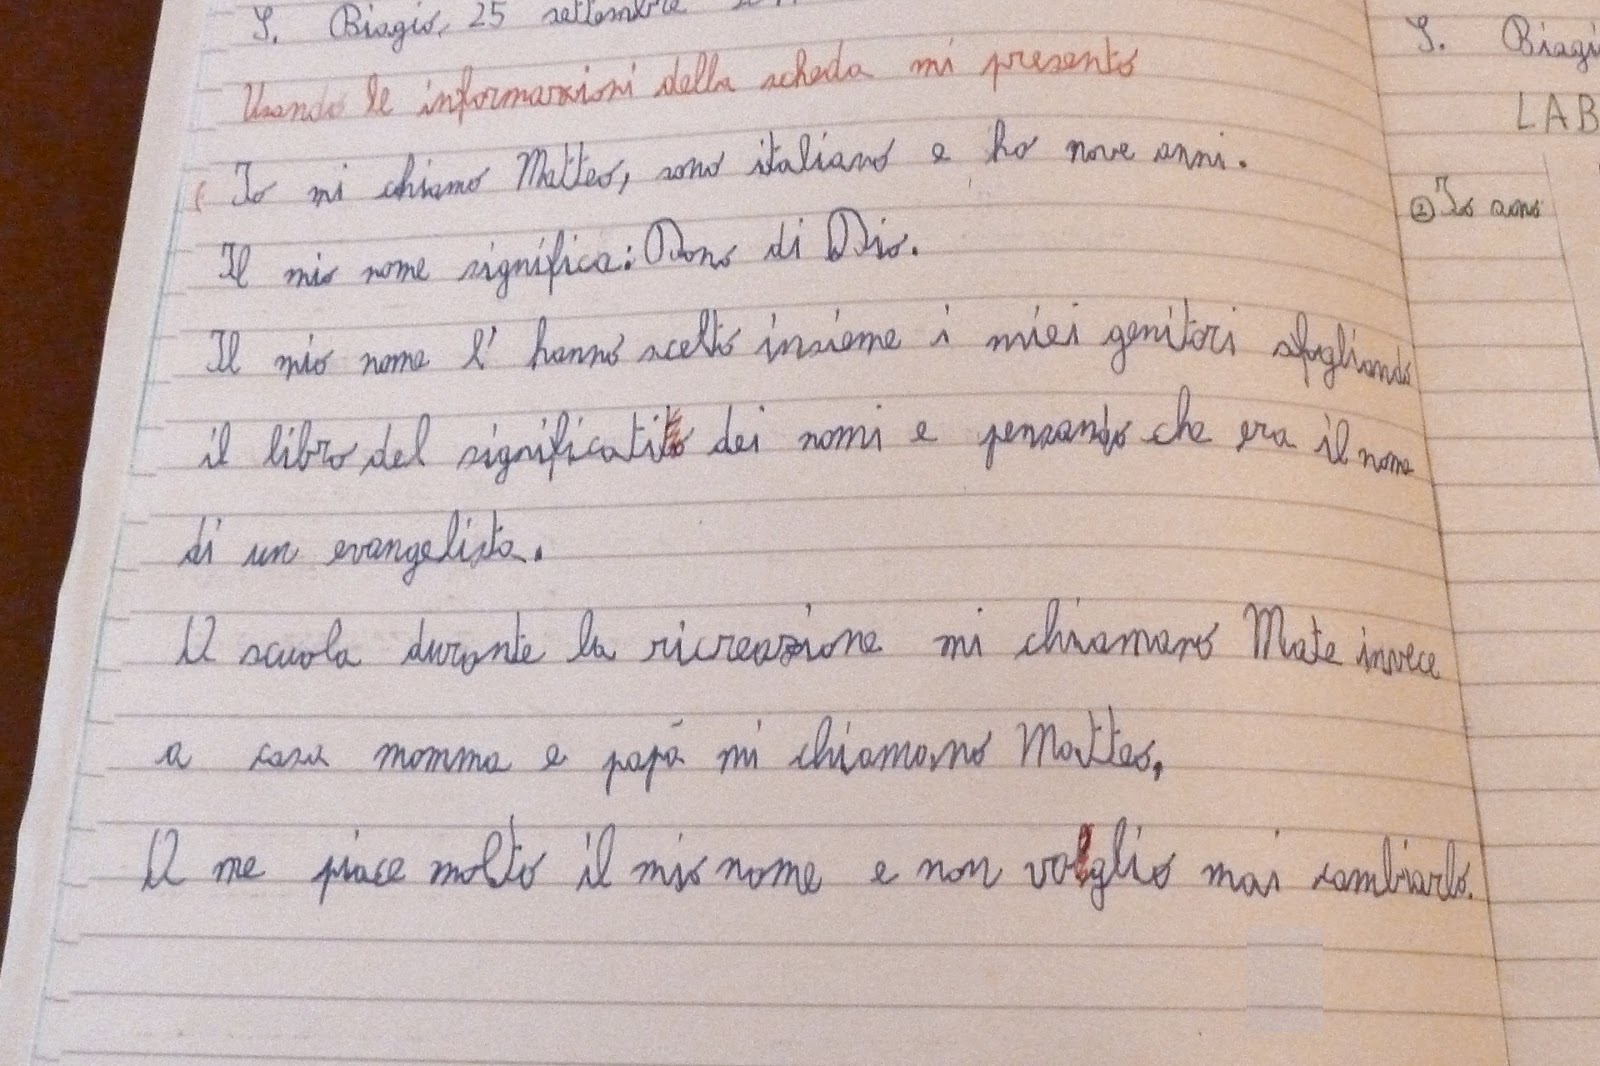 S. Biagio, 25 settembre
Usando le informazioni della scheda mi presento
Io mi chiamo Matteo, sono italiano e ho nove anni.
Il mio nome significa: Dono di Dio.
Il mio nome l' hanno scelto insieme i miei genitori sfogliando
il libro del significato dei nomi e pensando che era il nome
di un evangelista.
A scuola durante la ricreazione mi chiamano Mate invece
a casa mamma e papà mi chiamano Matteo,
A me piace molto il mio nome e non voglio mai cambiarlo.
S. Biagi
LAB
② Io sono